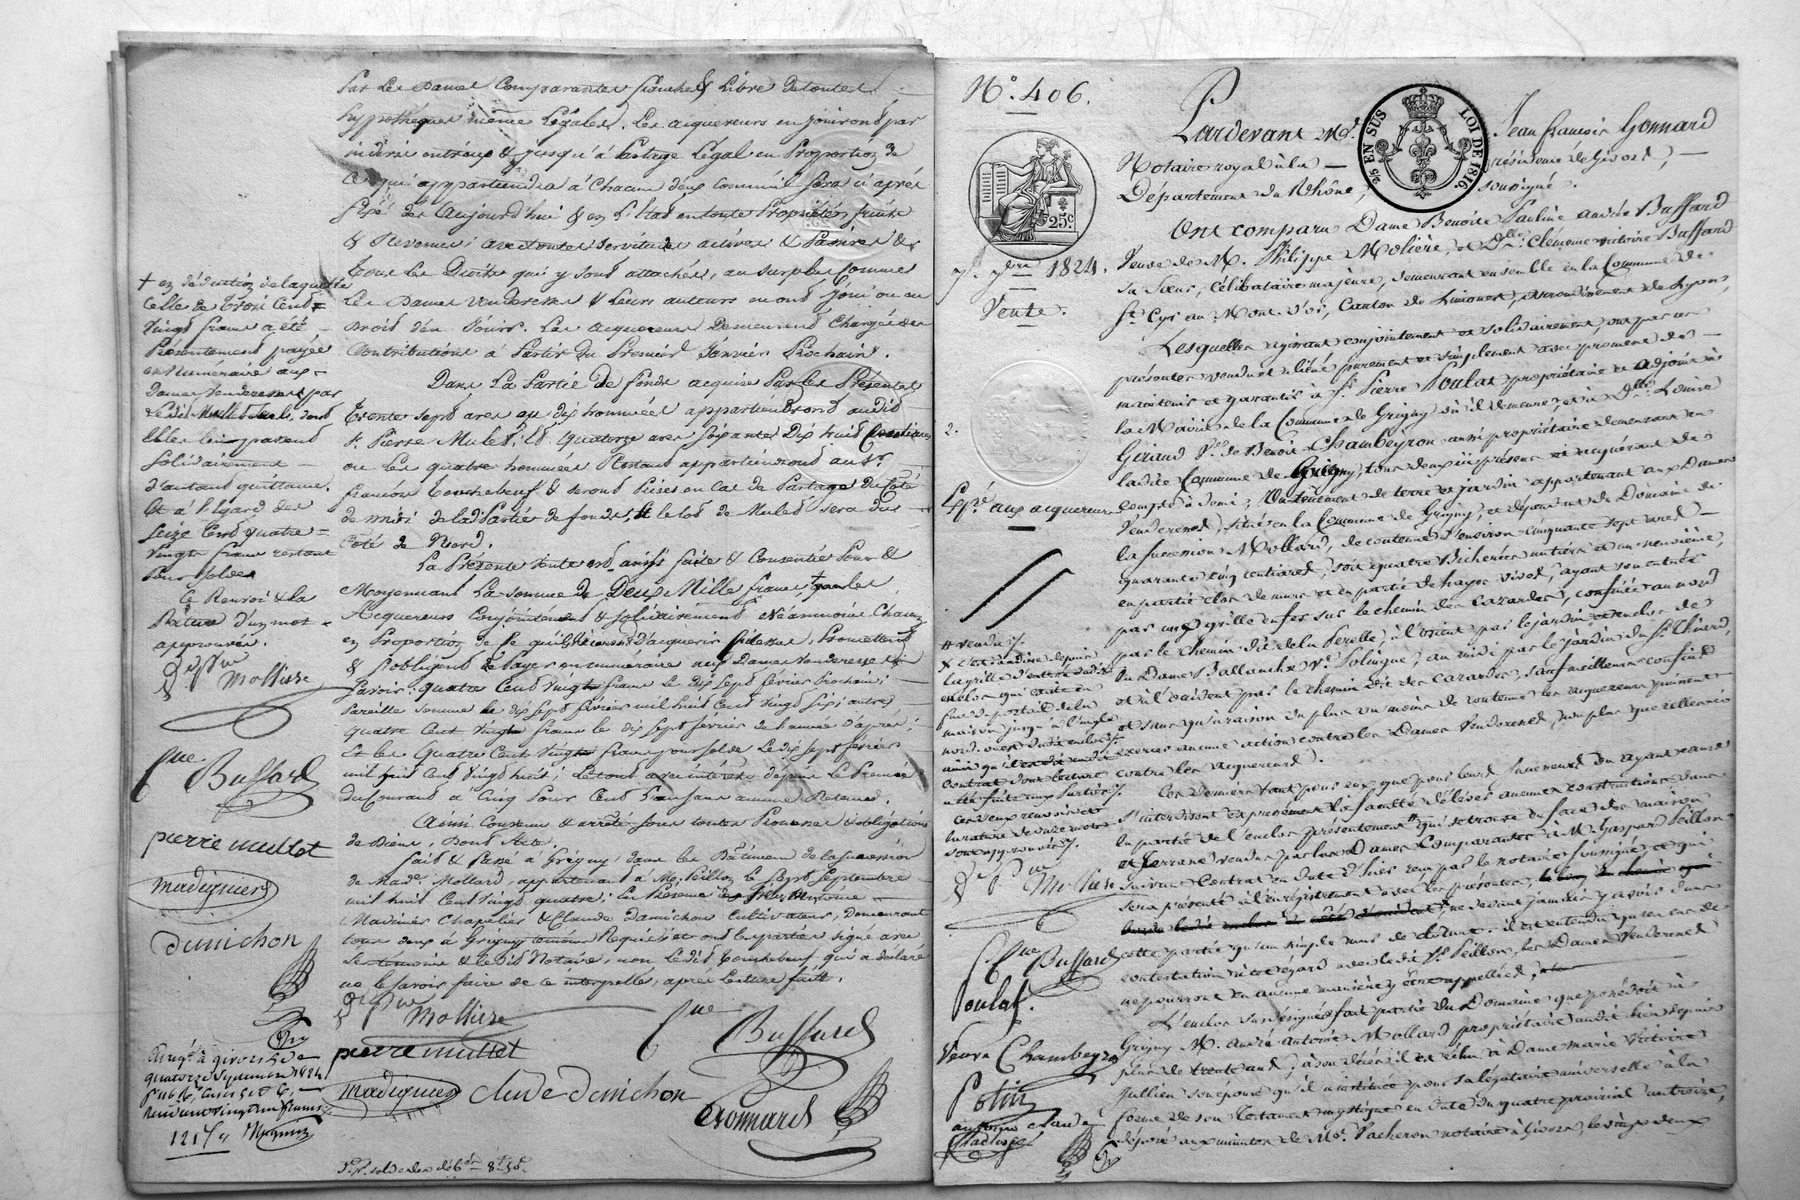 par les Dames Comparantes franche & Libre de toutes
hypothèques même Légales. Les acquereurs en jouiront par
indivis entr'eux & jusqu'à Partage Légal en Proportion de
ce qui appartiendra à Chacun d'eux Comme il sera ci après
fixé dès Aujourd'hui & en l'état en toute Propriété, fruits
& Revenus; avec toutes servitudes actives & Passives &
tous les Droits qui y sont attachés, au surplus Comme
les Dames venderesses & leurs auteurs en ont joui ou eu
droit d'en Jouir. Les acquereurs Demeurent Chargés des
Contributions à Partir du Premier Janvier Prochain.
Dans la Partie de fonds acquise Par les Présentes
trente sept ares ou dix hommées appartiendront audit
Sr. Pierre Mulet, Les quatorze ares soixante Dix huit Centiares
ou les quatre hommées Restant appartiendront au Sr.
françois Tourneboeuf & seront Prises en Cas de Partage du Côté
de midi de ladite Partie de fonds, & le lot de Mulet sera du
Côté de Nord.
La Présente vente est ainsi faite & Consentie Pour &
Moyennant La Somme de Deux Mille francs + que les
Acquereurs Conjointement & solidairement Néanmoins Chacun
en Proportion de ce qu'il vient D'acquerir Promettent
& s'obligent de Payer en numéraire aux Dames Venderesses
Savoir: quatre Cent Vingt francs le dix sept février Prochain;
Pareille somme le dix sept février mil huit Cent Vingt six; autres
quatre Cent Vingt francs le dix sept février de l'année d'après;
Et les quatre Cent Vingt francs pour solde le dix sept février
mil huit Cent Vingt huit; le tout avec intérêts depuis le Premier
du Courant à Cinq Pour Cent l'an sans aucune Retenue.
Ainsi Convenu & arrêté sous toutes Promesses & obligations
de Biens, Dont Acte.
fait & Passé à Grigny, dans les Bâtimens de la succession
de Made. Mollard, appartenant à Mr. Peillon le Sept Septembre
mil huit Cent Vingt quatre; En Présence de
Madinier Chapelier & Claude Damichon Cultivateur, Demeurant
tous deux à Grigny témoins Requis & ont les parties signé avec
les témoins & le dit Notaire, non Ledit Tourneboeuf qui a déclaré
ne le savoir faire de ce interpellé, après lecture faite.
Mollière
Buffard
pierre mullet
madignier
Claude damichon
Gonnard
+ en déduction de laquelle
celle de trois Cent
Vingt francs a été
Présentement payée
en Numéraire aux
Dames Venderesses par
Elles le
solidairement
d'autant quittance.
Et à l'égard des
Seize Cent quatre
Vingts francs restant
Pour solde
Le Renvoi & la
Rature d'un mot
approuvés.
Mollière
Buffard
pierre mullet
madignier
damichon
Enregé à givors le
quatorze Septembre 1824
N°. 406.
2/5 EN SUS
LOI DE 1816.
525c
7. 7bre 1824.
Vente.
2.
Expé. aux acquereurs
Pardevant Me. Jean François Gonnard
Notaire royal à la résidence de Givors,
Département du Rhône, soussigné.
Ont comparu Dame Benoite Pauline Andrée Buffard
Veuve de M. Philippe Molière, et Dlle. Clémence Victoire Buffard
sa Sœur, célibataire majeure, demeurant ensemble en la Commune de
St. Cyr au Mont-d'or, Canton de Limonest, arrondissement de Lyon,
Lesquelles agissant conjointement et solidairement, ont par ces
présentes vendu et aliéné purement et simplement avec promesse de
maintenir et garantir à Sr. Pierre Poulat propriétaire et Adjoint à
la Mairie de la Commune de Grigny où il demeure, et à Dlle. Louise
Giraud Ve. de Benoit Chambeyron aussi propriétaire demeurant en
ladite Commune de Grigny, tous deux ici présens et acquérant de
compte à demi; Un tènement de terre et jardin appartenant aux Dames
Venderesses, situé en la Commune de Grigny, et dépendant du Domaine de
la succession Mollard, de contenue d'environ cinquante sept ares
quarante cinq centiares, soit quatre Bicherées entières et un neuvième,
en partie clos de murs et en partie de hayes vives, ayant son entrée
par une grille en fer sur le chemin des Cazardes, confiné au nord
par le chemin dit de la Perelle, à l'orient par le jardin et enclos de
la Dame Ballanche Ve. Polingue, au midi par le jardin du Sr. Chirat,
et à l'occident par le chemin dit des Cazardes, sauf meilleurs confins
et sans qu'à raison du plus ou moins de contenue les acquereurs puissent
exercer aucune action contre les Dames Venderesses, non plus que celles-ci
contre les acquereurs.
Ces derniers tant pour eux que pour leurs successeurs ou ayant cause
s'interdisent expressément la faculté d'élever aucunes constructions dans
la partie de l'enclos présentement qui se trouve en face des maison
et terrasse vendues par les Dames Comparantes à M. Gaspard Peillon
suivant Contrat en date d'hier reçu par le notaire soussigné, et qui
sera présenté à l'enregistrement avec les présentes,
ne devant jamais y avoir dans
cette partie qu'un simple mur de clôture. il est entendu qu'en cas de
contestation à cet égard avec le dit Sr. Peillon, les Dames Venderesses
ne pourront en aucune manière y être appellées.
L'enclos sus désigné fait partie du Domaine que possédoit à
Grigny M. André Antoine Mollard propriétaire audit lieu depuis
plus de trente ans; à son décès il est échu à Dame Marie Victoire
Jullien son épouse qu'il a instituée pour sa légataire universelle à la
forme de son testament mystique en date du quatre prairial an treize,
déposé aux minutes de Me. Vacheron notaire à Givors, le vingt deux
# vendu /.
la grille d'entrée
en face du portail de la
maison jusqu'à l'angle
Mollière
Buffard
Poulat
Veuve Chambeyron
Potin